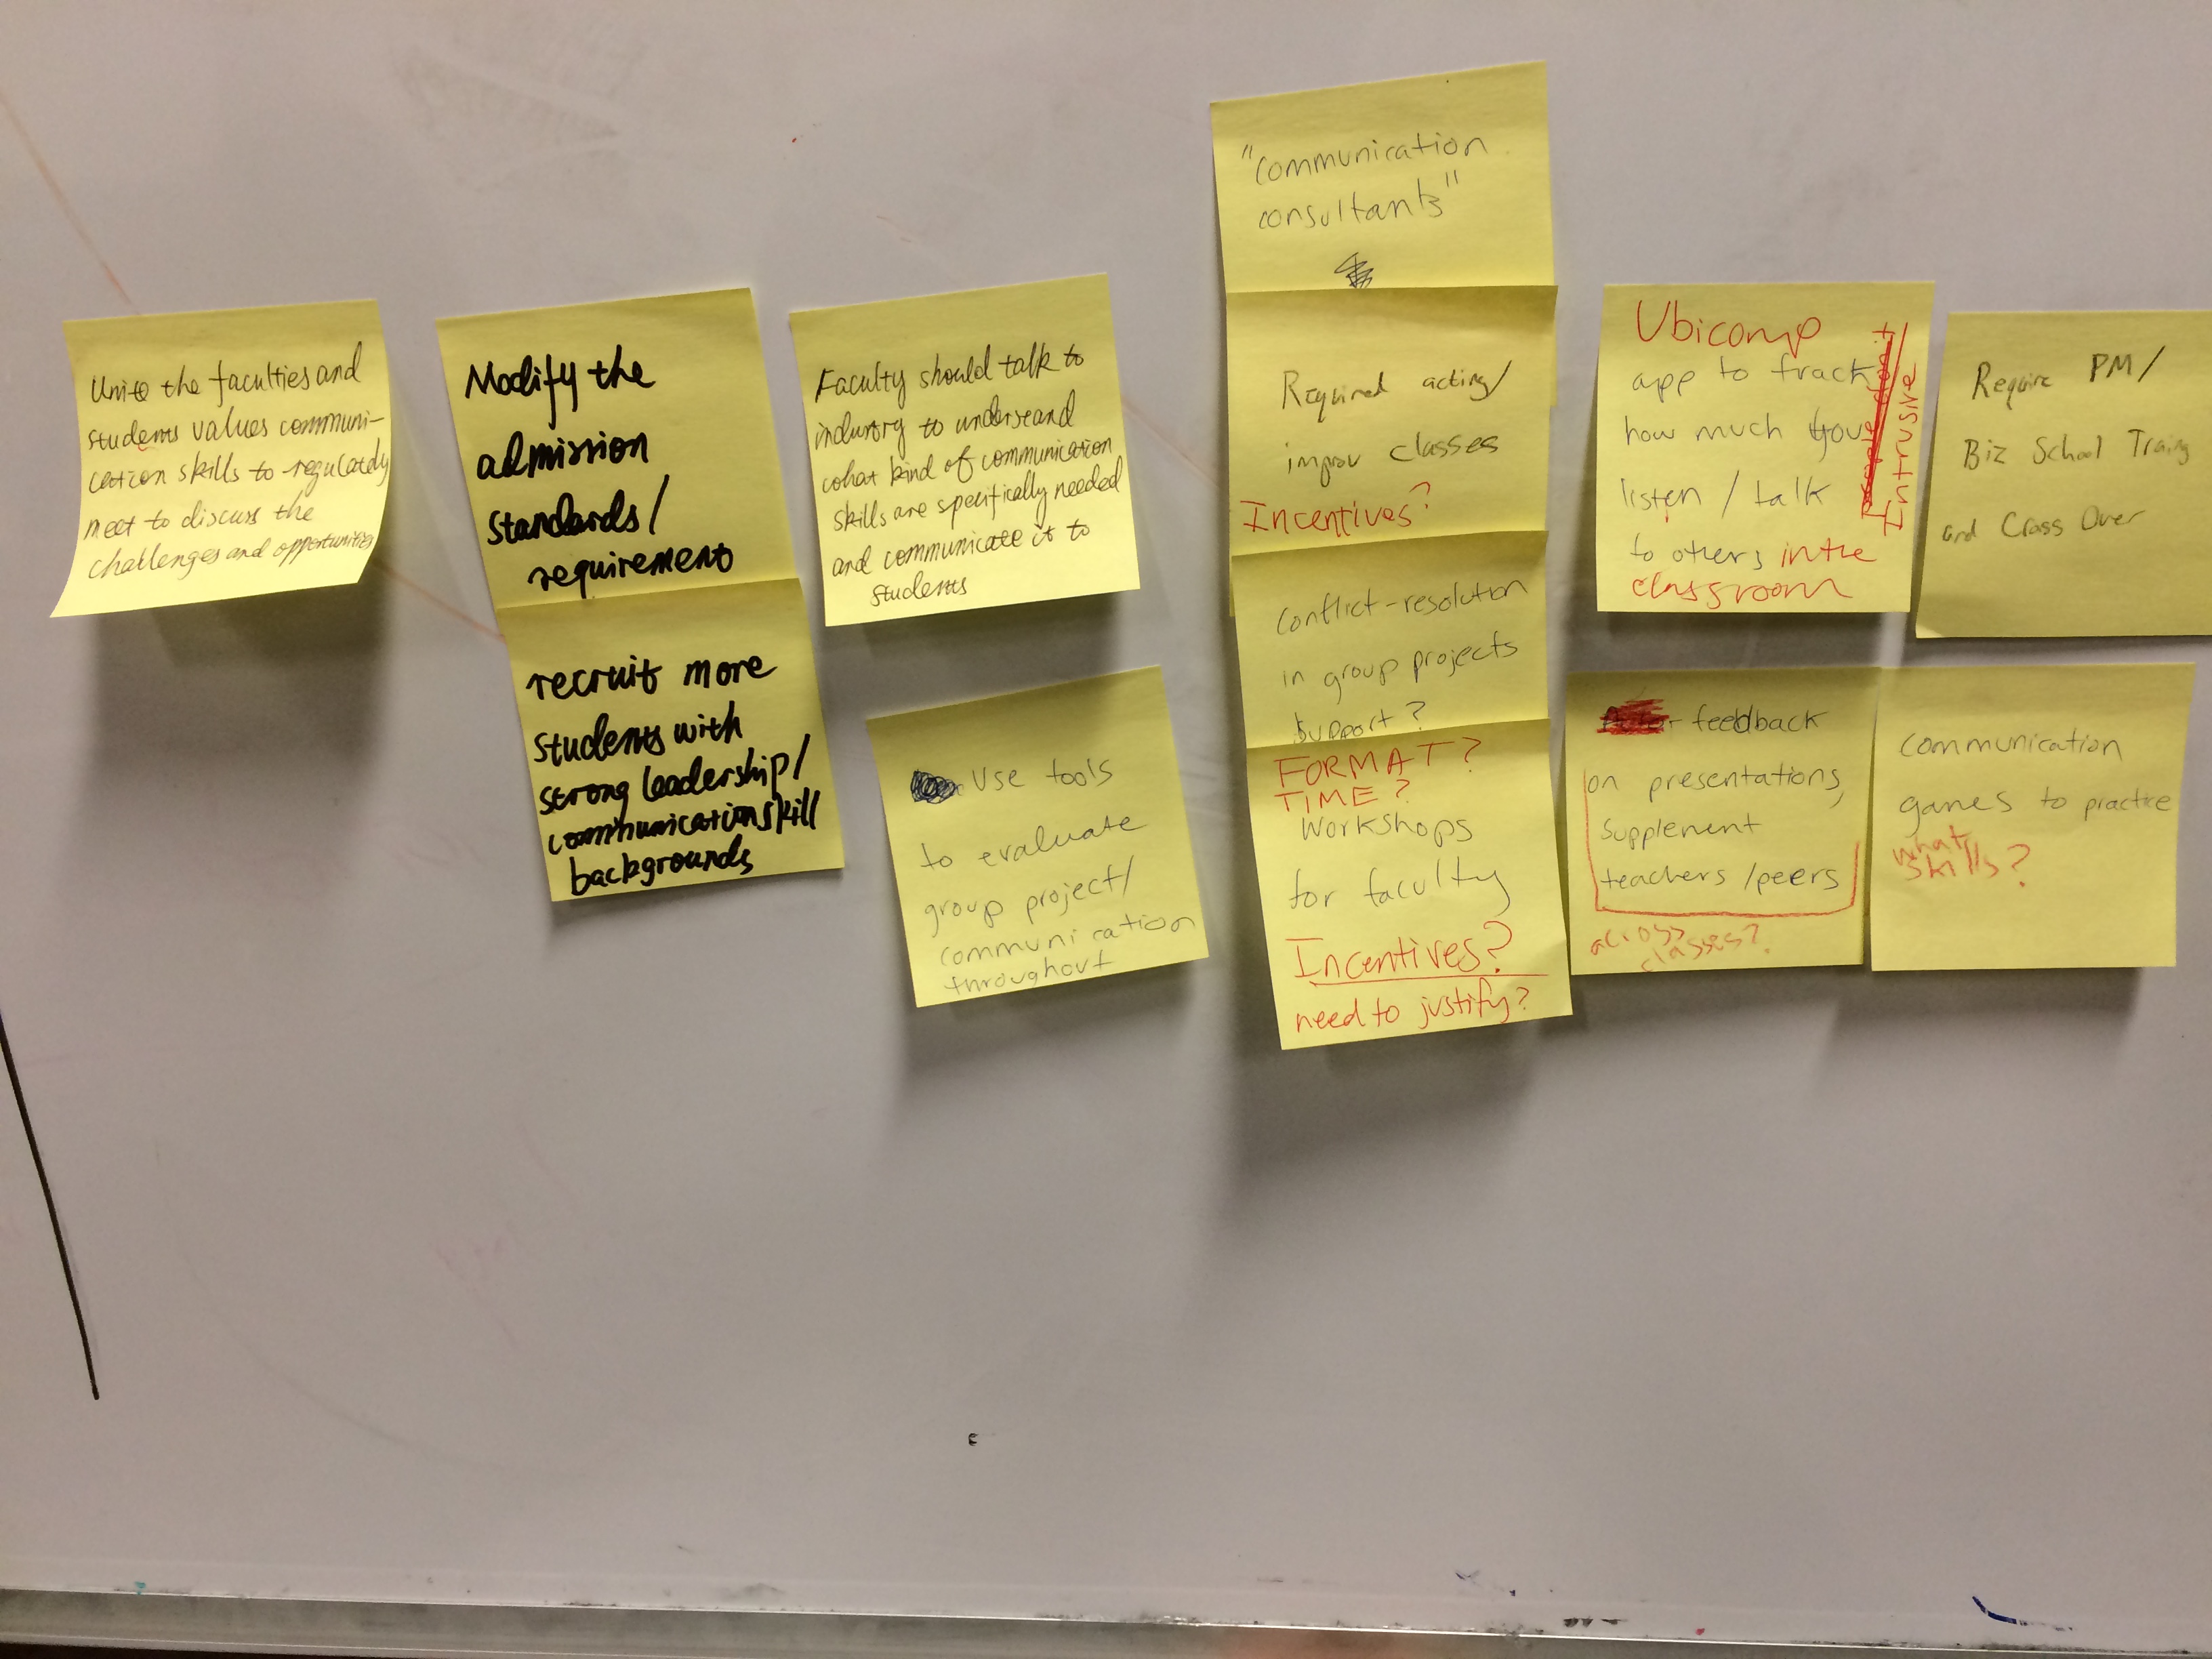 Unite the faculties and
students values communi-
cation skills to regulately
meet to discuss the
challenges and opportunities
Modify the
admission
standards/
requirement
recruit more
students with
strong leadership/
communication skill
backgrounds
Faculty should talk to
industry to understand
what kind of communication
skills are specifically needed
and communicate it to
students
Use tools
to evaluate
group project/
communication
throughout
"communication
consultants"
Required acting/
improv classes
Incentives?
Conflict-resolution
in group projects
support?
FORMAT?
TIME?
Workshops
for faculty
Incentives?
need to justify?
Ubicomp
app to track
how much you
listen / talk
to others in the
classroom
Intrusive
feedback
on presentations,
supplement
teachers/peers
across
classes?
Require PM/
Biz School Training
and Cross Over
communication
games to practice
what
skills?